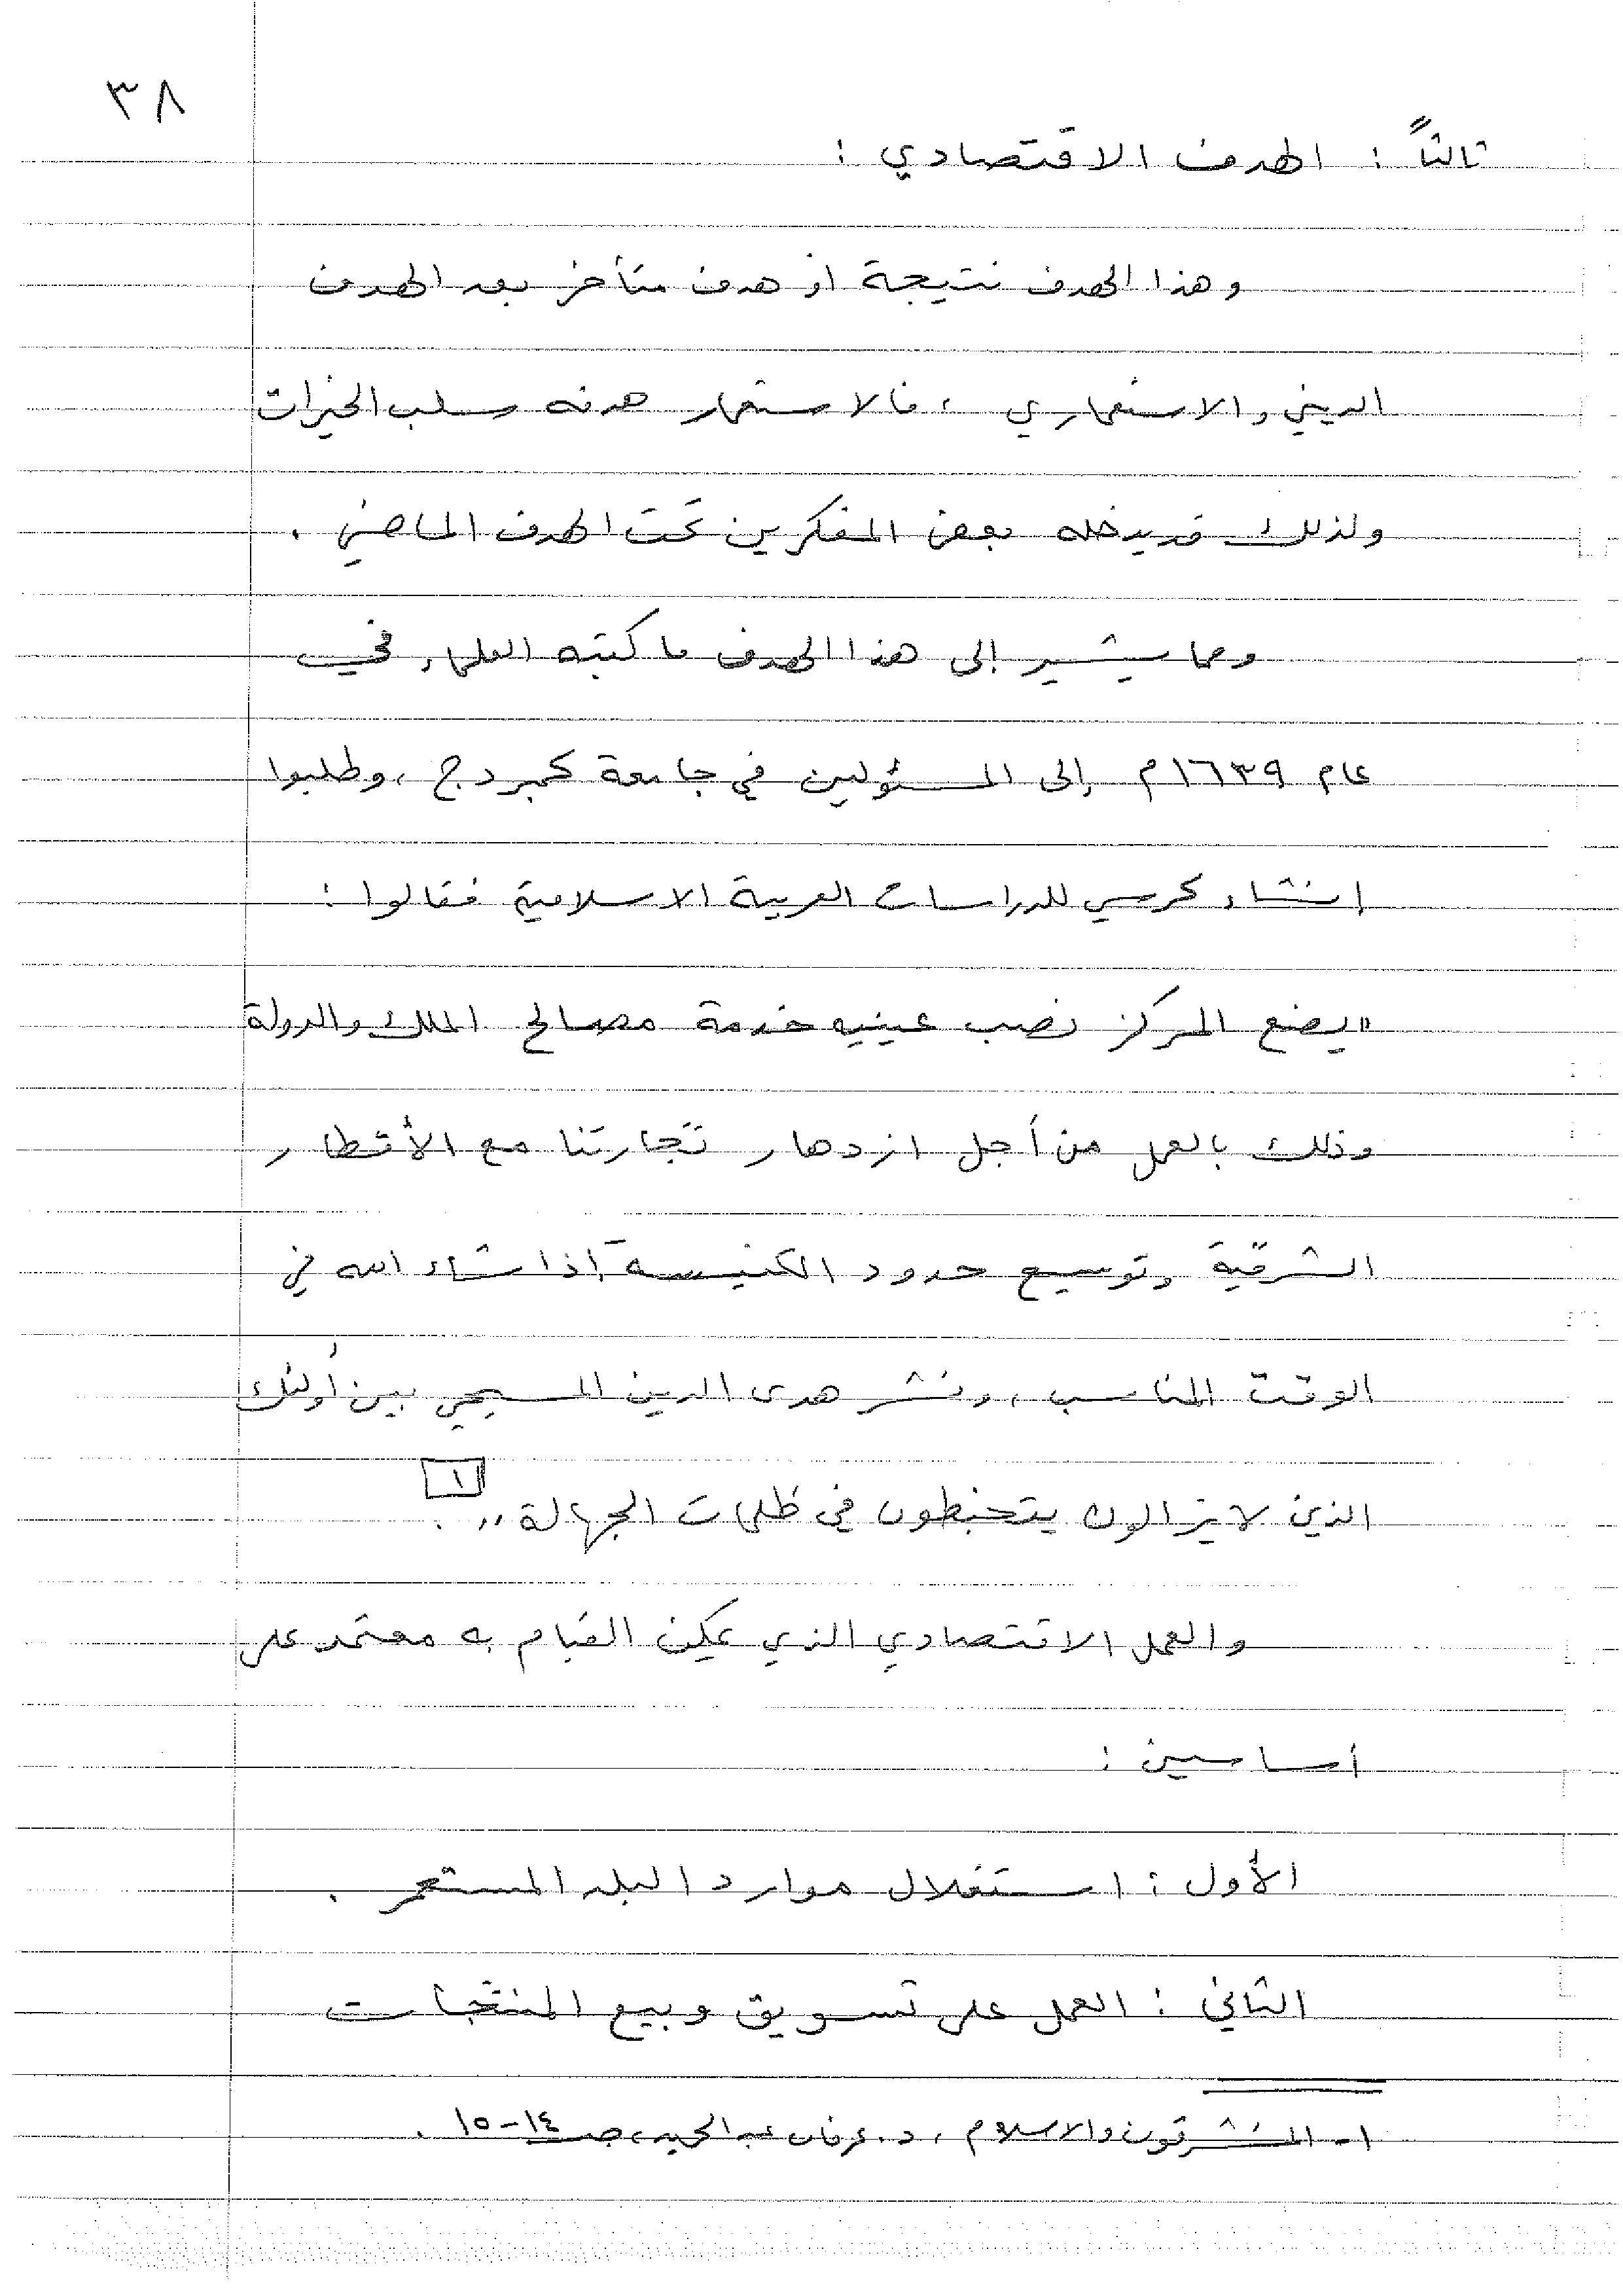 ٣٨
ثالثاً : الهدف الاقتصادي :
وهذا الهدف نتيجة أو هدف متأخر بعد الهدف
الديني والاستعماري ، فالاستعمار هدفه سلب الخيرات
ولذلك قد يدخله بعض المفكرين تحت الهدف الماضي .
ومما يشير إلى هذا الهدف ما كتبه العلماء في
عام ١٦٣٩م إلى المسئولين في جامعة كمبردج ، وطلبوا
إنشاء كرسي للدراسات العربية الاسلامية فقالوا :
"يضع المركز نصب عينيه خدمة مصالح الملك والدولة
وذلك بالعمل من أجل ازدهار تجارتنا مع الأقطار
الشرقية وتوسيع حدود الكنيسة إذا شاء الله في
الوقت المناسب ، ونشر هدى الدين المسيحي بين أولئك
الذين لا يزالون يتخبطون في ظلمات الجهالة" [١] .
والعمل الاقتصادي الذي يمكن القيام به معتمد على
أساسين :
الأول : استغلال موارد البلد المستعمر .
الثاني : العمل على تسويق وبيع المنتجات
١- المستشرقون والاسلام ، د. عرفان عبد الحميد ، صـ ١٤-١٥ .